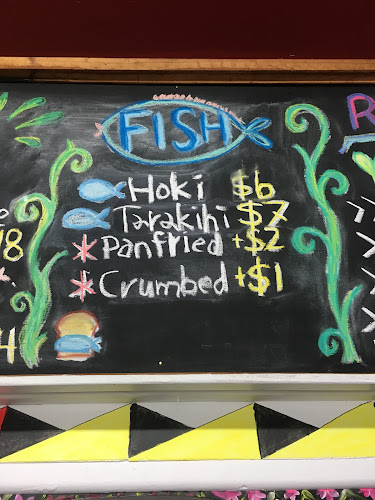 FISH
Hoki $6
Tarakihi $7
* Panfried +$2
* Crumbed +$1
8
4
R